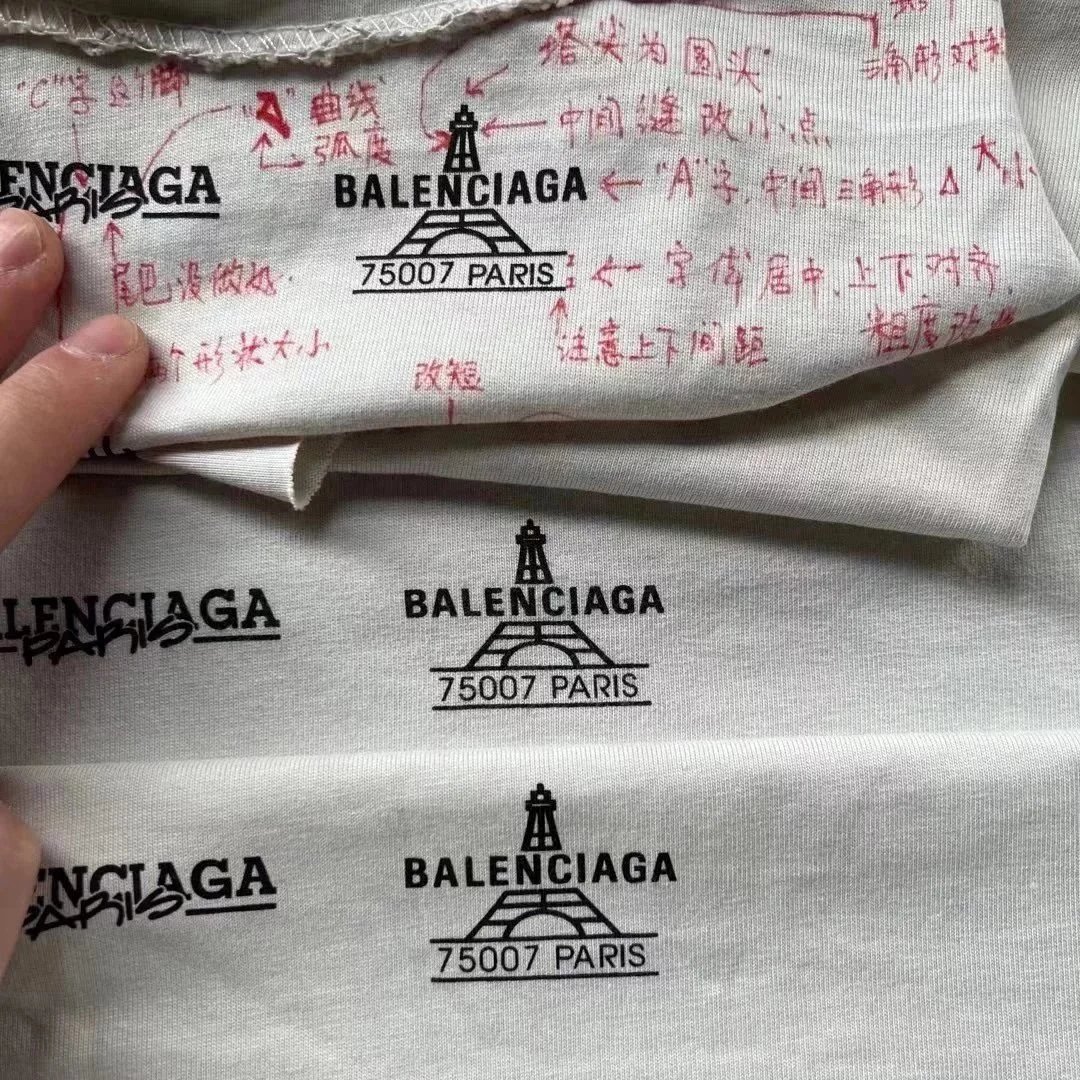 塔尖为圆头
三角形对称
"C"字
"A"曲线
弧度
中间缝改小点
ENCIAGA
PARIS
BALENCIAGA
"A"字,中间三角形 大小
75007 PARIS
字体居中,上下对齐,
粗度改
尾巴没做好.
注意上下间距
个形状大小
改短
LENCIAGA
PARIS
BALENCIAGA
75007 PARIS
ENCIAGA
PARIS
BALENCIAGA
75007 PARIS